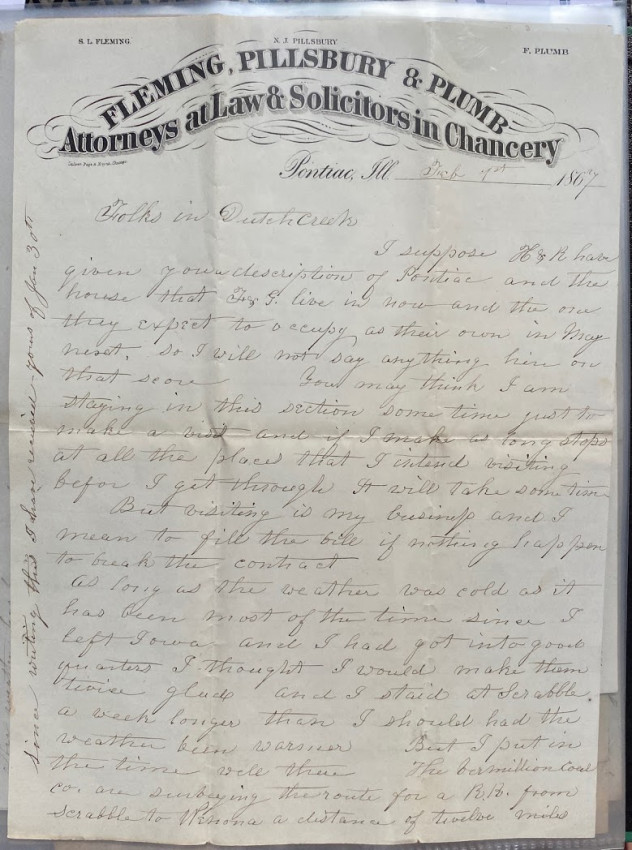 S. L. FLEMING. N. J. PILLSBURY F. PLUMB.
FLEMING, PILLSBURY & PLUMB
Attorneys at Law & Solicitors in Chancery
Pontiac, Ill Feb 1st 1867
Folks in Dutch Creek
I suppose H & K have
given you a description of Pontiac and the
house that F & G. live in now and the one
they expect to occupy as their own in May
next. So I will not say anything here on
that score You may think I am
staying in this section some time just to
make a visit and if I make as long stops
at all the places that I intend visiting
befor I get through It will take some time
But visiting is my business and I
mean to fill the bill if nothing happen
to break the contract
As long as the weather was cold as it
has been most of the time since I
left Iowa and I had got into good
quarters I thought I would make them
twice glad and I staid at Scrabble
a week longer than I should had the
weather been warmer But I put in
the time well there The Vermillion Coal
co. are surveying the route for a R.R. from
Scrabble to Wenona a distance of twelve miles
since writing this I have received yours of Jan 30th